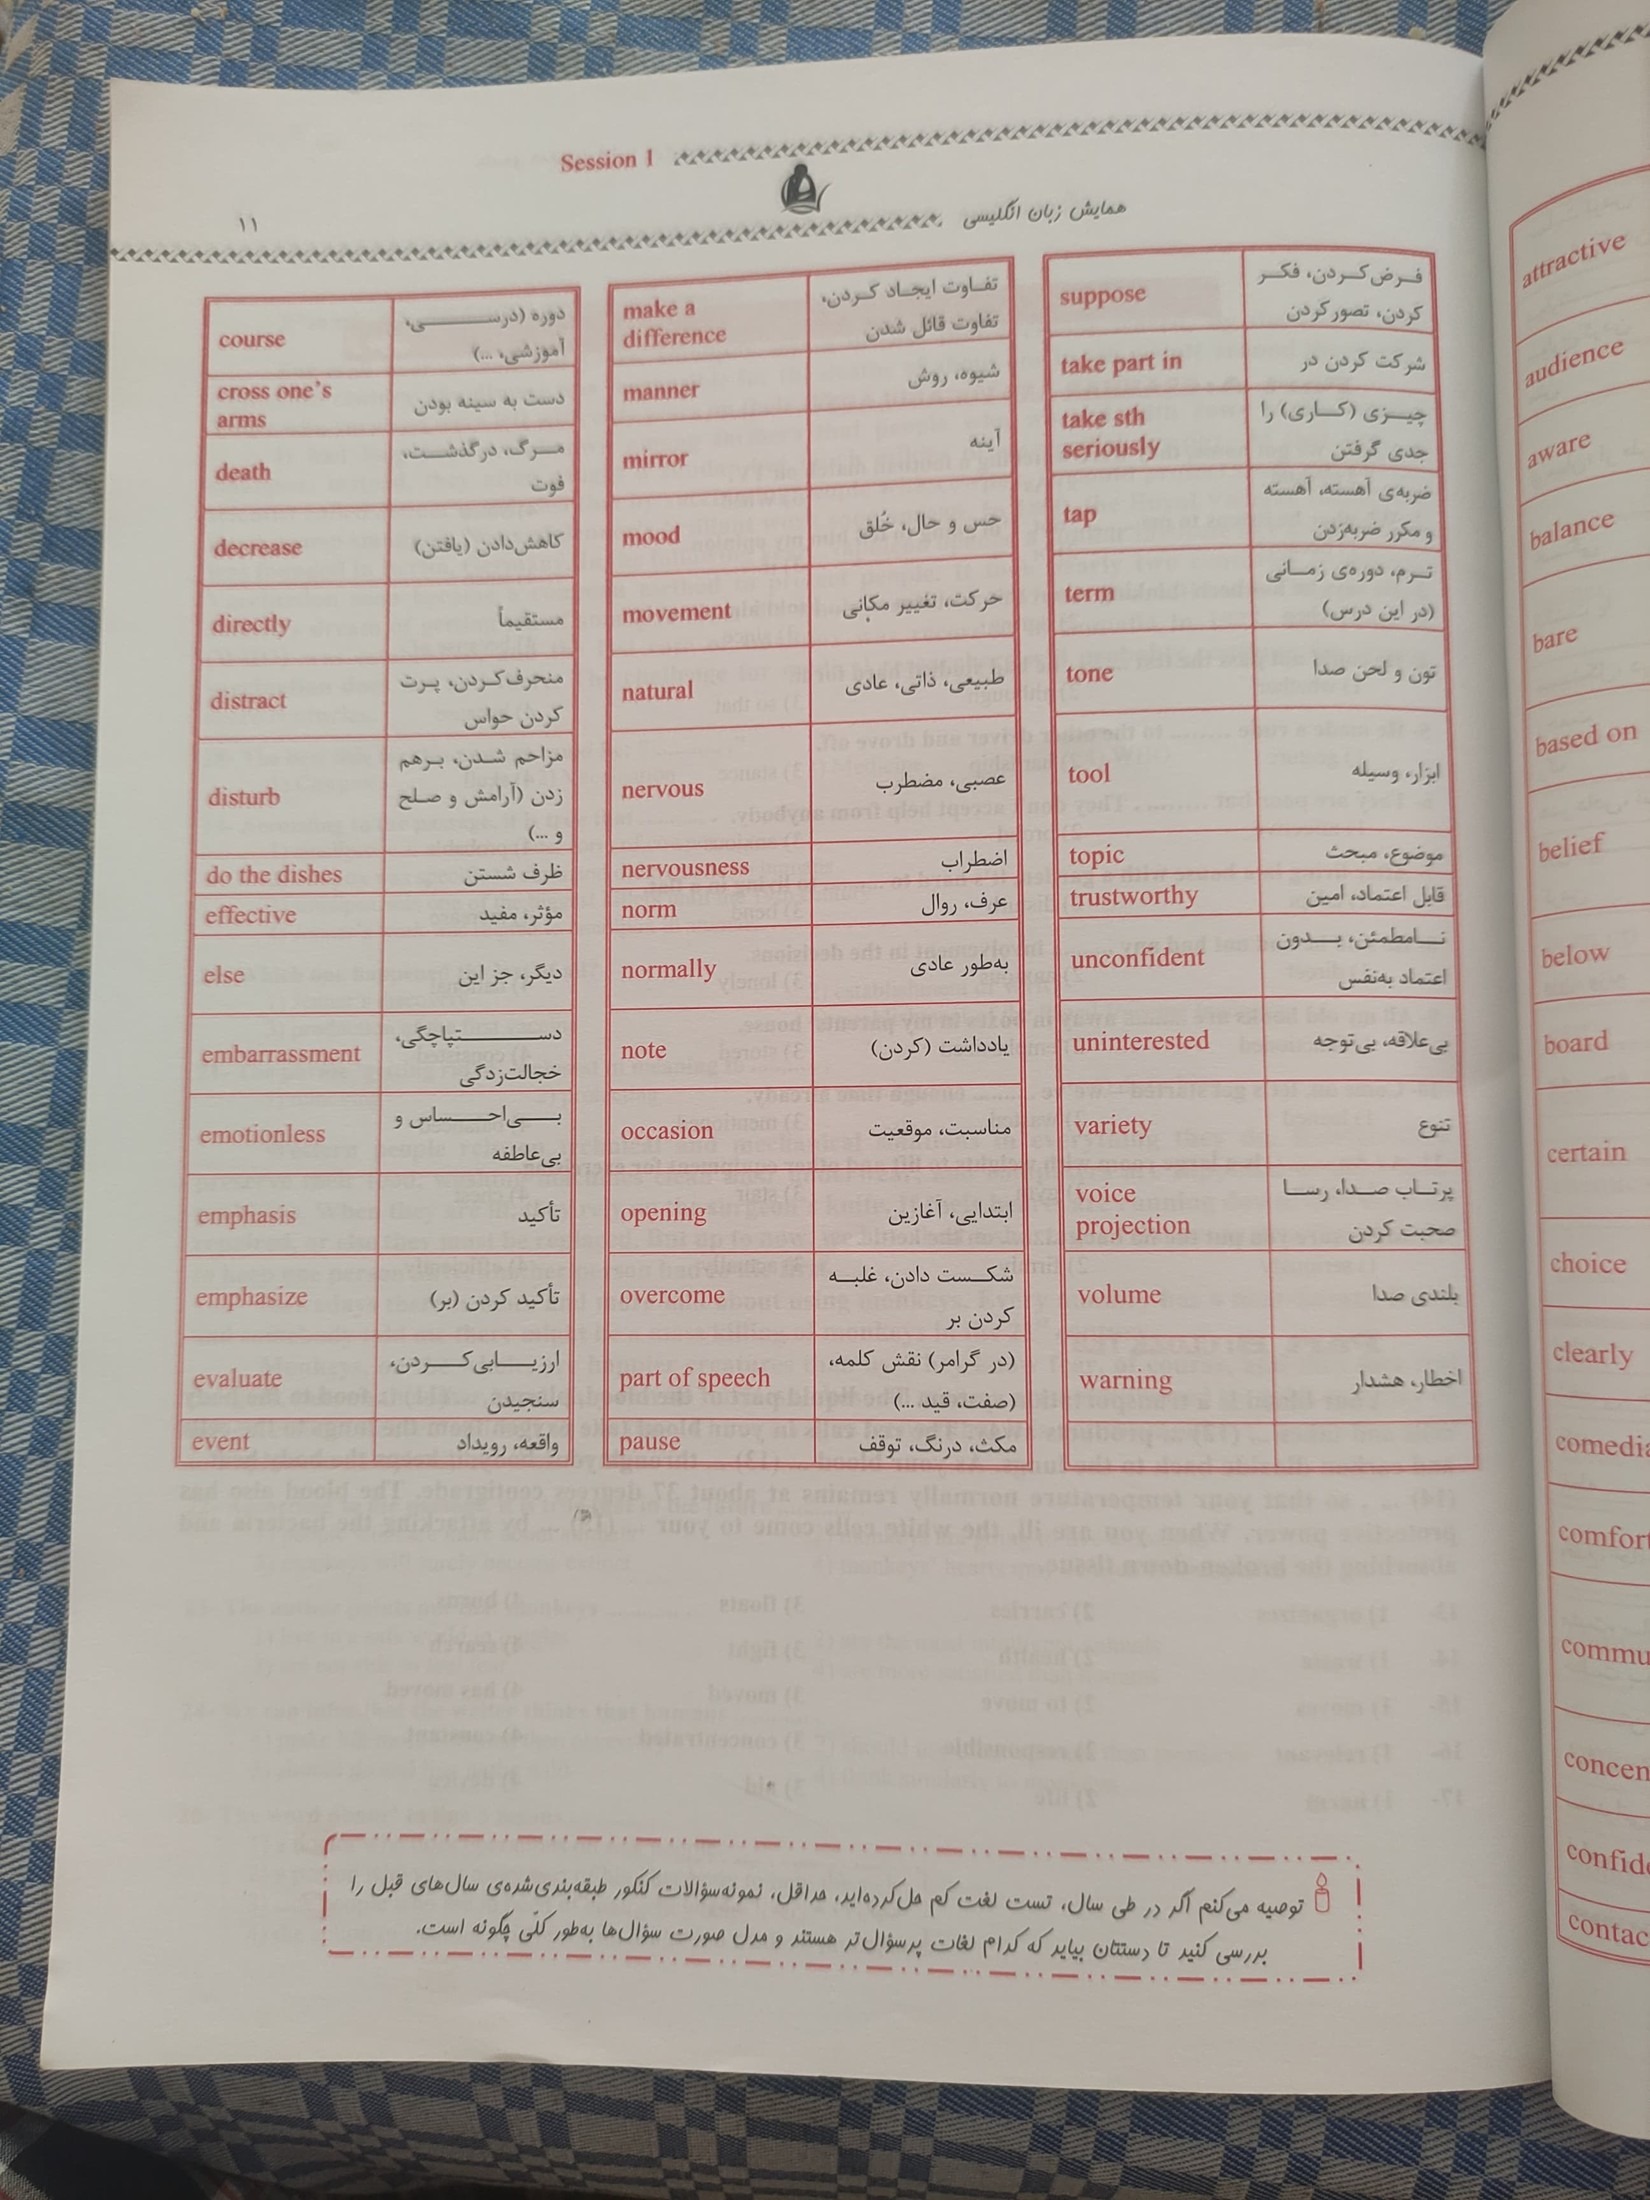 Session 1
همایش زبان انگلیسی
۱۱
course
دوره (درســـی،
آموزشی، ...)
cross one's
arms
دست به سینه بودن
death
مـرگ، درگذشـت،
فوت
decrease
کاهش‌دادن (یافتن)
directly
مستقیماً
distract
منحرف‌کـردن، پـرت
کردن حواس
disturb
مزاحم شـدن، بـرهم
زدن (آرامش و صـلح
و ...)
do the dishes
ظرف شستن
effective
مؤثر، مفید
else
دیگر، جز این
embarrassment
دســـتپاچگی،
خجالت‌زدگی
emotionless
بـــی‌احـــساس و
بی‌عاطفه
emphasis
تأکید
emphasize
تأکید کردن (بر)
evaluate
ارزیـــابی‌کـــردن،
سنجیدن
event
واقعه، رویداد
make a
difference
تفـاوت ایجـاد کـردن،
تفاوت قائل شدن
manner
شیوه، روش
mirror
آینه
mood
حس و حال، خُلق
movement
حرکت، تغییر مکانی
natural
طبیعی، ذاتی، عادی
nervous
عصبی، مضطرب
nervousness
اضطراب
norm
عرف، روال
normally
به‌طور عادی
note
یادداشت (کردن)
occasion
مناسبت، موقعیت
opening
ابتدایی، آغازین
overcome
شکـست دادن، غلبـه
کردن بر
part of speech
(در گرامر) نقش کلمه،
(صفت، قید ...)
pause
مکث، درنگ، توقف
suppose
فـرض‌کـردن، فکـر
کردن، تصور کردن
take part in
شرکت کردن در
take sth
seriously
چیـزی (کـاری) را
جدی گرفتن
tap
ضربه‌ی آهسته، آهسته
و مکرر ضربه‌زدن
term
تـرم، دوره‌ی زمـانی
(در این درس)
tone
تون و لحن صدا
tool
ابزار، وسیله
topic
موضوع، مبحث
trustworthy
قابل اعتماد، امین
unconfident
نـــامطمئن، بـــدون
اعتماد به‌نفس
uninterested
بی‌علاقه، بی‌توجه
variety
تنوع
voice
projection
پرتـاب صـدا، رسـا
صحبت کردن
volume
بلندی صدا
warning
اخطار، هشدار
توصیه می‌کنم اگر در طی سال، تست لغت کم حل‌کرده‌اید، حداقل، نمونه‌سؤالات کنکور طبقه‌بندی‌شده‌ی سال‌های قبل را
بررسی کنید تا دستتان بیاید که کدام لغات پرسؤال‌تر هستند و مدل صورت سؤال‌ها به‌طور کلّی چگونه است.
attractive
audience
aware
balance
bare
based on
belief
below
board
certain
choice
clearly
comedia
comfort
commu
concen
confide
contac